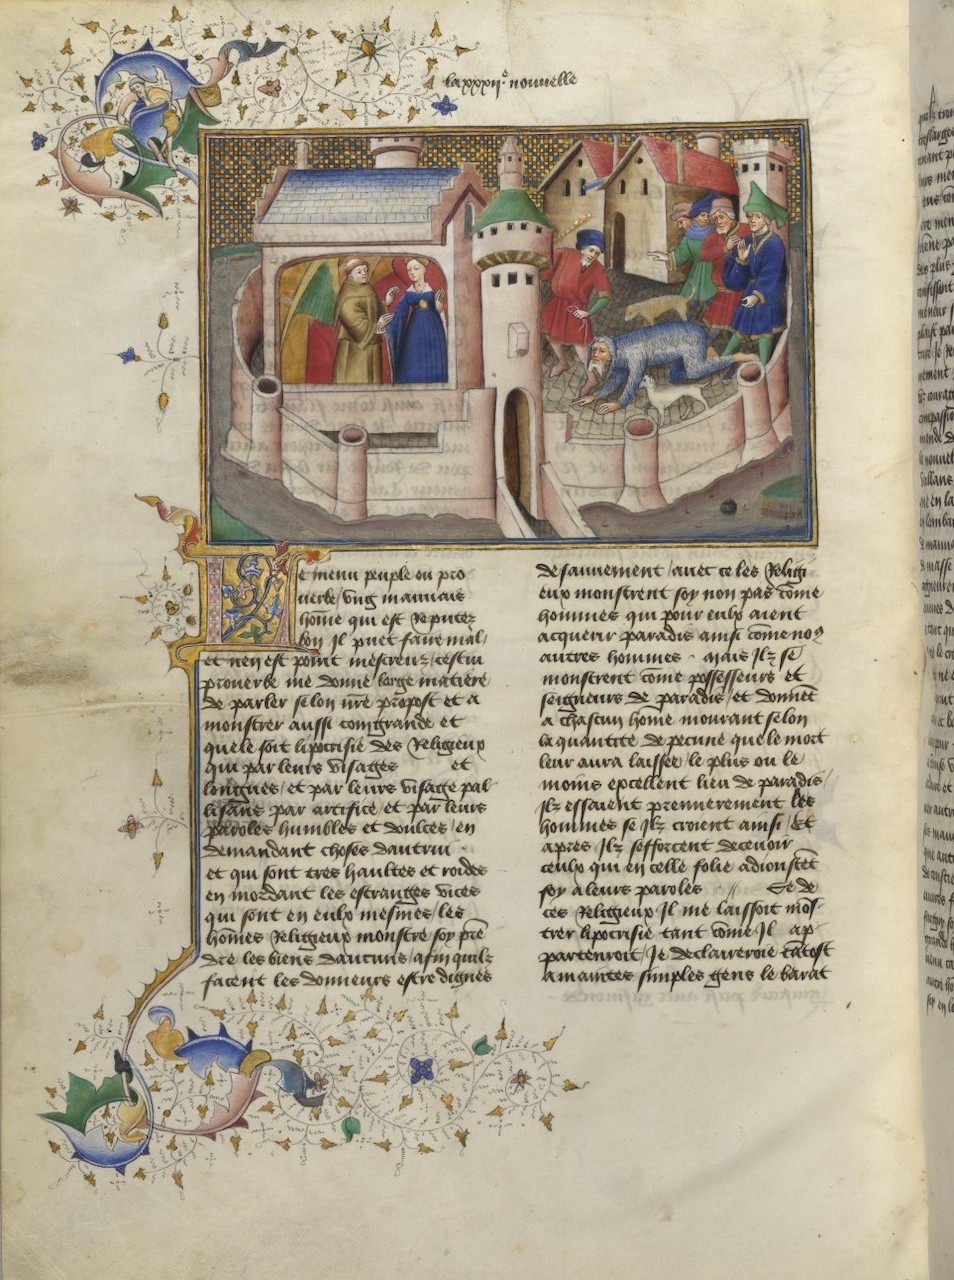 la xxxij.e nouuelle
Le menu peuple ou pro
uerbe / vng mauuais
hōme qui est repute
bon Il puet faire mal /
et nen est point mescreu / cestui
prouerbe me donne large matiere
de parler selon nr̄e propost et a
monstrer aussi com grande et
quele soit lipocrisie des Religieux
qui par leurs visages et
longues / et par leurs visage pal
lissans par artifice / et par leurs
paroles humbles et doulces / en
demandant choses dautrui
et qui sont tres haultes et roides
en mordant les estranges vices
qui sont en eulx mesmes / les
hōmes Religieux monstre soy prē
dre les biens daucuns / afin quilz
facent les donneurs estre dignes
de sauuement / auec ce les Religi
eux monstrent soy non pas cōme
hommes qui pour eulx aient
acquerir paradis ainsi cōme nos
autres hommes . Mais Ilz se
monstrent cōme possesseurs et
seigneurs de paradis / et donnēt
a chascun hōme mourant selon
la quantite de pecune que le mort
leur aura laissee / le plus ou le
moins excellent lieu de paradis /
Ilz essaient premierement les
hommes se Ilz croient ainsi / Et
apres / Ilz sefforcent deceuoir
ceulx qui en celle folie adioustēt
foy a leurs paroles // Se de
ces Religieux Il me laissoit mōs
trer lipocrisie tant cōme Il ap
partenroit / Je declaireroie tātost
a maintes simples gens le barat